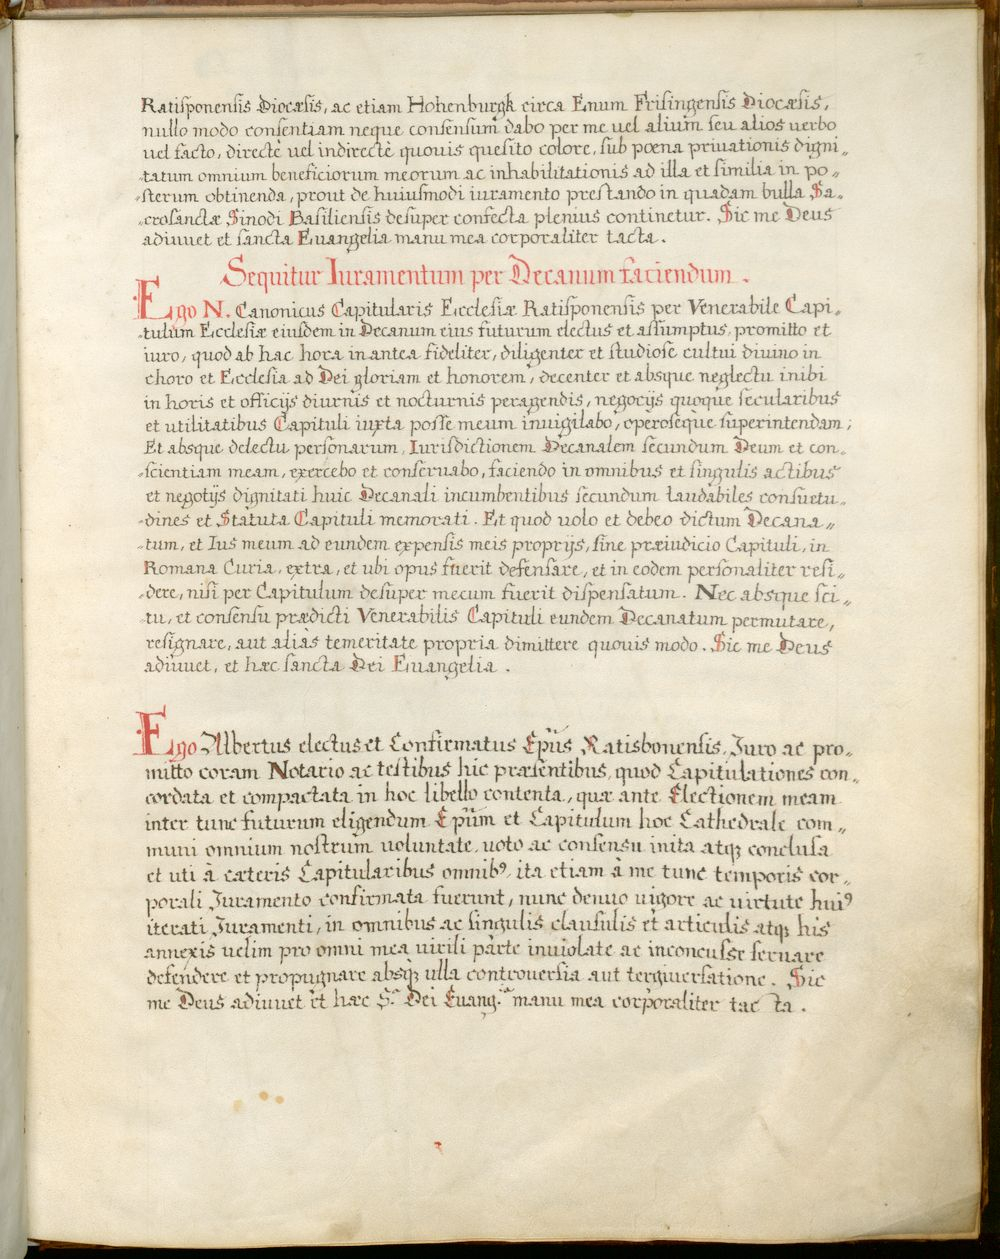 Ratisponensis Diocæsis, ac etiam Hohenburgk circa Enum Frisingensis Diocæsis,
nullo modo consentiam neque consensum dabo per me uel alium seu alios uerbo
uel facto, directè uel indirectè quouis quesito colore, sub pœna priuationis digni„
tatum omnium beneficiorum meorum ac inhabilitationis ad illa et similia in po„
„sterum obtinenda, prout de huiusmodi iuramento prestando in quadam bulla Sa„
„crosanctæ Sinodi Basiliensis desuper confecta plenius continetur. Sic me Deus
adiuuet et sancta Euangelia manu mea corporaliter tacta.
Sequitur Iuramentum per Decanum faciendum.
Ego N. Canonicus Capitularis Ecclesiæ Ratisponensis per Venerabile Capi„
„tulum Ecclesiæ eiusdem in Decanum eius futurum electus et assumptus, promitto et
iuro, quod ab hac hora in antea fideliter, diligenter et studiose cultui diuino in
choro et Ecclesia ad Dei gloriam et honorem, decenter et absque neglectu inibi
in horis et officijs diurnis et nocturnis peragendis, negocijs quoque secularibus
et utilitatibus Capituli iuxta posse meum inuigilabo, operoseque superintendam;
Et absque delectu personarum, Iurisdictionem Decanalem secundum Deum et con„
„scientiam meam, exercebo et conseruabo, faciendo in omnibus et singulis actibus
et negotijs dignitati huic Decanali incumbentibus secundum laudabiles consuetu„
„dines et Statuta Capituli memorati. Et quod uolo et debeo dictum Decana„
„tum, et Ius meum ad eundem expensis meis proprijs, sine præiudicio Capituli, in
Romana Curia, extra, et ubi opus fuerit defensare, et in eodem personaliter resi„
„dere, nisi per Capitulum desuper mecum fuerit dispensatum. Nec absque sci„
„tu, et consensu prædicti Venerabilis Capituli eundem Decanatum permutare,
resignare, aut aliàs temeritate propria dimittere quouis modo. Sic me Deus
adiuuet, et hæc sancta Dei Euangelia.
Ego Albertus electus et Confirmatus Epũs Ratisbonensis, Juro ac pro„
mitto coram Notario ac testibus hic præsentibus, quod Capitulationes con„
cordata et compactata in hoc libello contenta, quæ ante Electionem meam
inter tunc futurum eligendum Epũm et Capitulum hoc Cathedrale com„
muni omnium nostrum uoluntate, uoto ac consensu inita atqꝫ conclusa
et uti à cæteris Capitularibus omnibꝰ, ita etiam à me tunc temporis cor„
porali Juramento confirmata fuerunt, nunc denuo uigore ac uirtute huiꝰ
iterati Juramenti, in omnibus ac singulis clausulis et articulis atqꝫ his
annexis uelim pro omni mea uirili parte inuiolate ac inconcusse seruare
defendere et propugnare absqꝫ ulla controuersia aut tergiuersatione. Sic
me Deus adiuuet et hæc S.ᵃ Dei Euang.ᵃ manu mea corporaliter tacta.